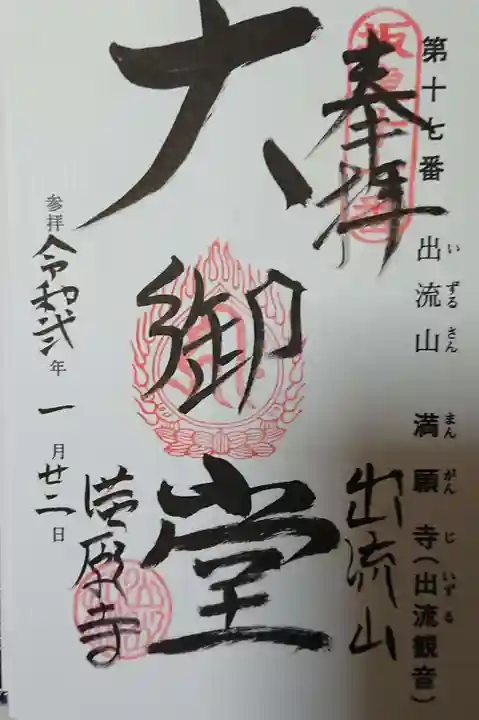 第十七番 出流山 満願寺(出流観音)
いずるさん まんがんじ いずる
奉拝
出流山
大御堂
満願寺
参拝 令和弐年一月廿二日